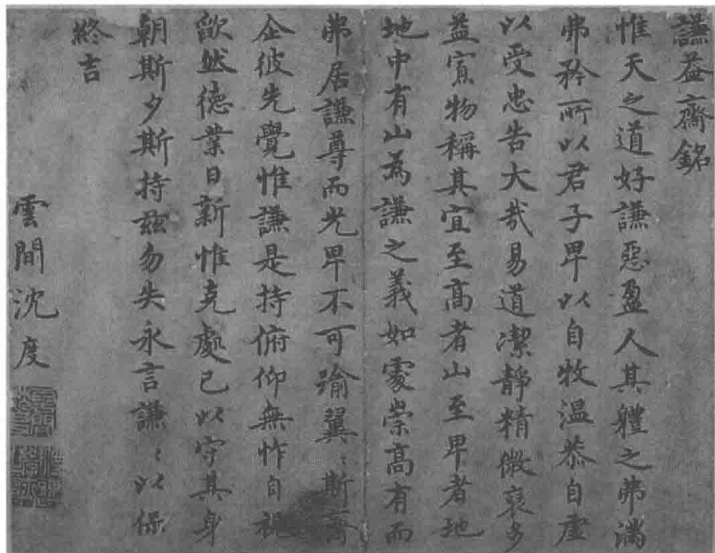 謙益齋銘
惟天之道好謙惡盈人其體之弗滿
弗矜所以君子卑以自牧溫恭自虛
以受忠告大哉易道潔靜精微裒多
益寡物稱其宜至高者山至卑者地
地中有山為謙之義如處崇高有而
弗居謙尊而光卑不可踰翼〻斯齋
企彼先覺惟謙是持俯仰無怍自視
歉然德業日新惟克處己以守其身
朝斯夕斯持茲勿失永言謙〻以保
終吉
雲間沈度